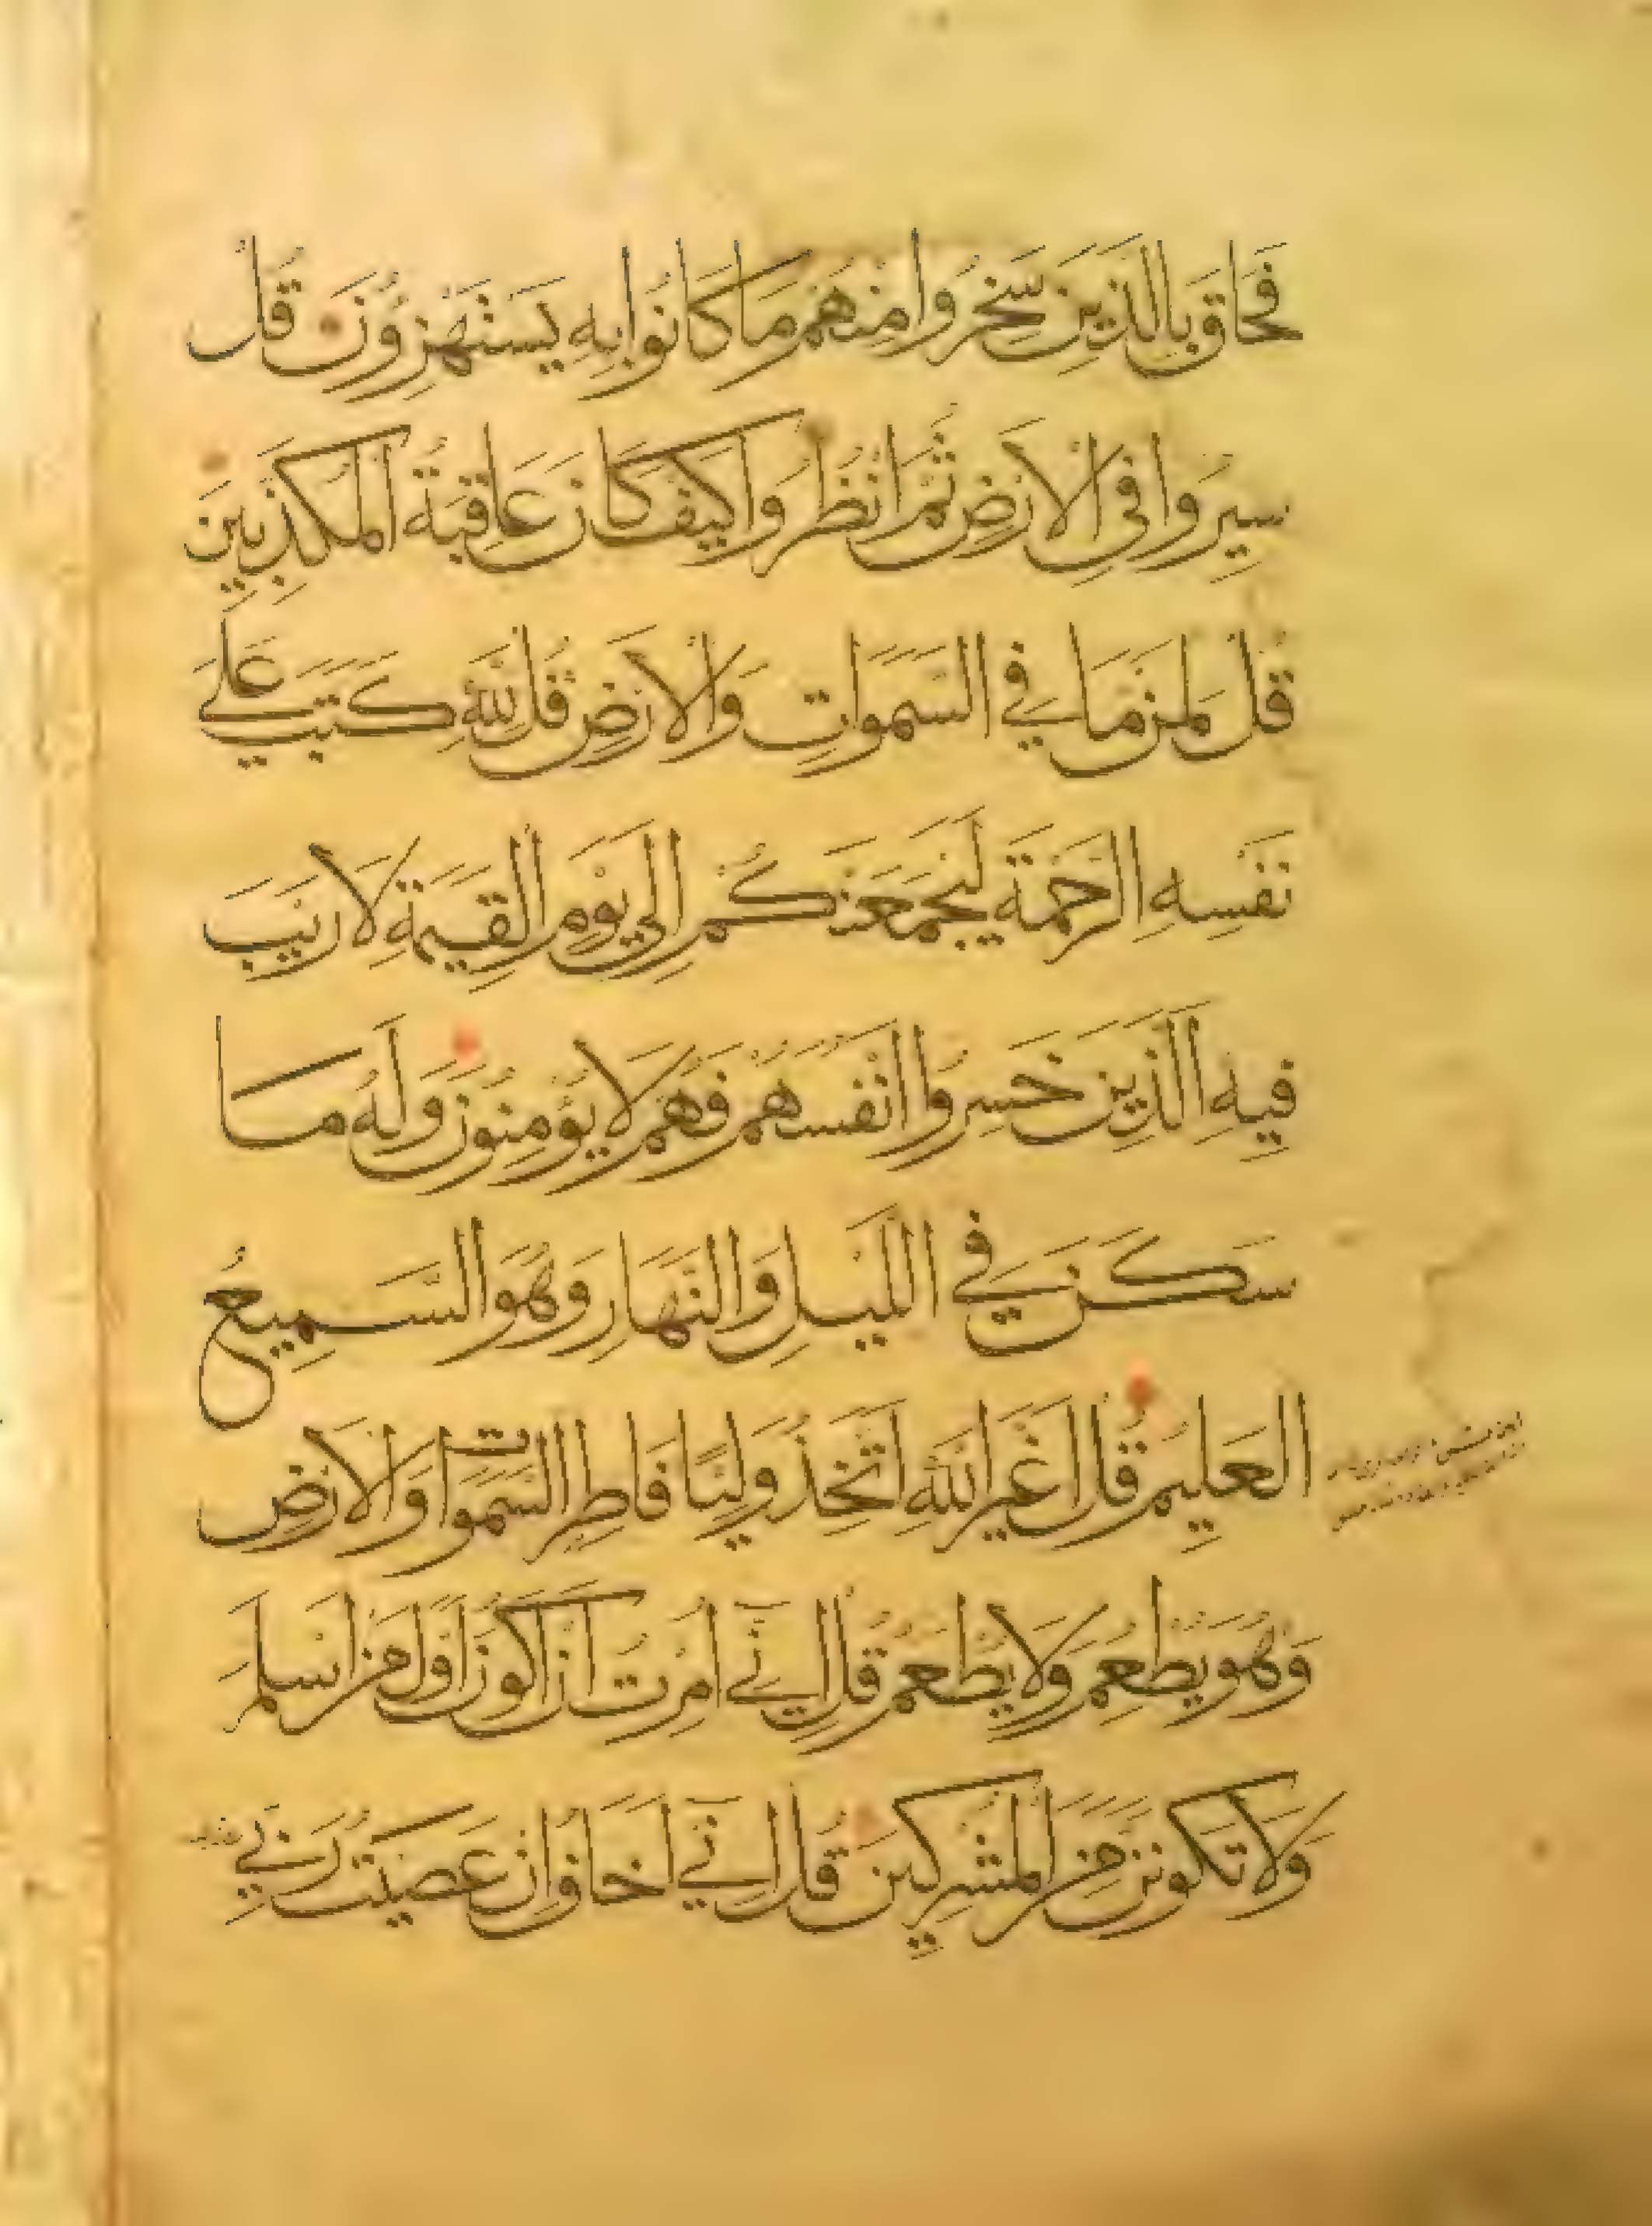 فَحَاقَ بِالَّذِينَ سَخِرُوا مِنْهُمْ مَا كَانُوا بِهِ يَسْتَهْزِؤُنَ قُلْ
سِيرُوا فِي الْاَرْضِ ثُمَّ انْظُرُوا كَيْفَ كَانَ عَاقِبَةُ الْمُكَذِّبِينَ
قُلْ لِمَنْ مَا فِي السَّمَوَاتِ وَالْاَرْضِ قُلْ لِلَّهِ كَتَبَ عَلَى
نَفْسِهِ الرَّحْمَةَ لَيَجْمَعَنَّكُمْ اِلَى يَوْمِ الْقِيَمَةِ لَا رَيْبَ
فِيهِ الَّذِينَ خَسِرُوا اَنْفُسَهُمْ فَهُمْ لَا يُؤْمِنُونَ وَلَهُ مَا
سَكَنَ فِي اللَّيْلِ وَالنَّهَارِ وَهُوَ السَّمِيعُ
الْعَلِيمُ قُلْ اَغَيْرَ اللَّهِ اَتَّخِذُ وَلِيًّا فَاطِرِ السَّمَوَاتِ وَالْاَرْضِ
وَهُوَ يُطْعِمُ وَلَا يُطْعَمُ قُلْ اِنِّي اُمِرْتُ اَنْ اَكُونَ اَوَّلَ مَنْ اَسْلَمَ
وَلَا تَكُونَنَّ مِنَ الْمُشْرِكِينَ قُلْ اِنِّي اَخَافُ اِنْ عَصَيْتُ رَبِّي